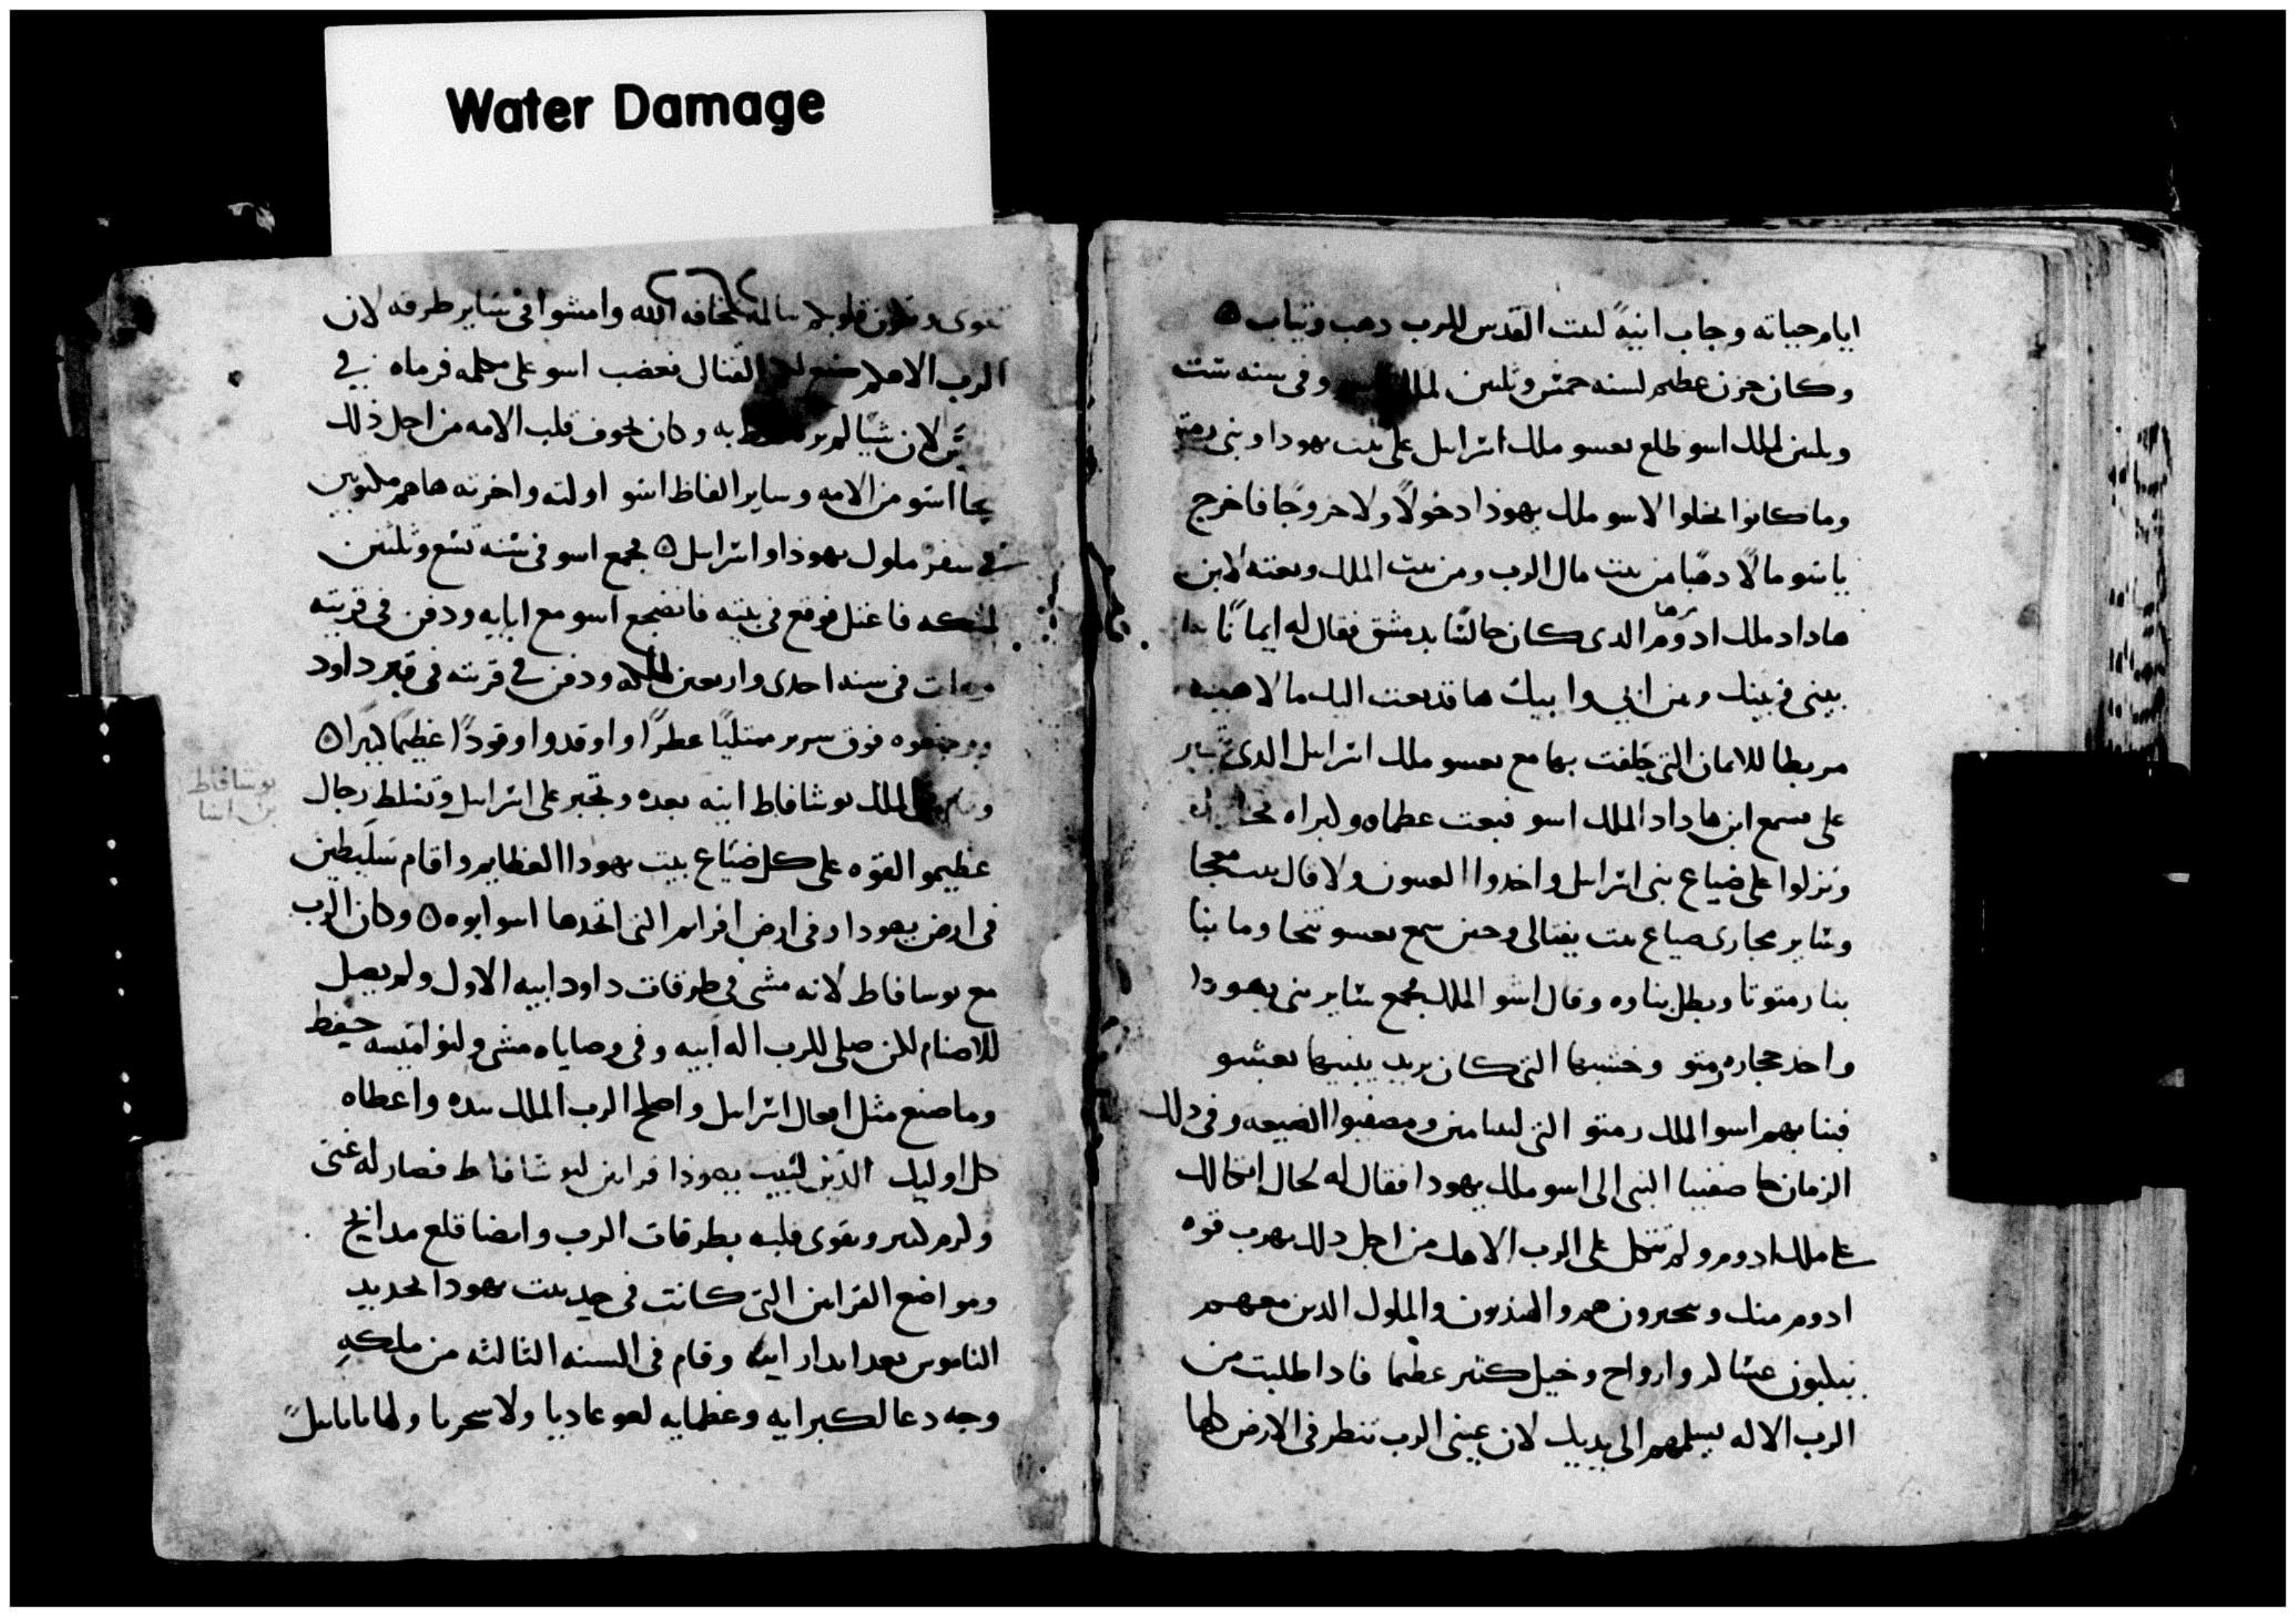 Water Damage
ايام حياته وجاب ابيه لبت القدس للرب دهب وتياب ه
وكان حزن عظيم لسنه خمس وثلثين لملك وفي سنه ست
وثلثين لملك اسو طلع بعسو ملك اسراىيل على بيت يهودا وبنى رمتو
وما كانوا يخلوا لاسو ملك يهوذا دخولاً ولا خروجًا فاخرج
ياسو مالًا دهبا من بيت مال الرب ومن بيت الملك وبعته لابن
هاداد ملك ادوم الدي كان جالسا بدمشق فقال له ايمانًا
بيني وبينك وبين ابي وابيك ها قد بعت اليك مالا هبيه
مربطا للايمان التي حلفت بها مع بعسو ملك اسراىيل الدي
على فسمع ابن هاداد الملك اسو فبعت عظماه وكبراه
ونزلوا على ضياع بني اسراىيل واخدوا العيون ولا قال بيت معجا
وساير مجاري ضياع بيت يفتالي وحين سمع بعسو تنحا وما بنا
بنا رمتو تا وبطل بناوه وقال اسو الملك يجمع ساير بني يهودا
واخد حجاره رمتو وخشبها التي كان يريد يبنيها بعسو
فبنا بهم اسو الملك رمتو التي لبنيامين ومصفيوا الضيعه وفي دلك
الزمان جا صفنيا النبي الى اسو ملك يهودا فقال له لحال اتكالك
على ملك ادوم ولم تتكل على الرب الاهك من اجل دلك يهرب قوه
ادوم منك وسحيرون هم والهنديون والملوك الدين معهم
يبلبون عساكر وارواح وخيل كتير عظيما فادا طلبت من
الرب الاله يسلمهم الى يديك لان عيني الرب تنظر في الارض كلها
تقوى وتكون قلوبكم سالمه لمخافه الله وامشوا في ساير طرقه لان
الرب الاهكم القتال فغضب اسو على محلمه فرماه في
لان شيا لم به وكان يخوف قلب الامه من اجل ذلك
نجا اسو من الامه وساير الفاظ اسو اولته واخرته هاهم مكتوبين
في سفر ملوك يهوذا واسراىيل ه فجمع اسو في سنه تسع وثلثين
لملكه فاعتل فوقع في بيته فانضجع اسو مع ابايه ودفن في قريته
ومات في سنه احدى واربعين لملكه ودفن في قريته في قبر داود
ووضعوه فوق سرير ممتليًا عطرًا واوقدوا وقودًا عظيمًا كبيرًا ه
الملك يوشافاط ابنه بعده وتجبر على اسراىيل وتسلط رجال
عظيمو القوه على كل ضياع بيت يهودا العظايم واقام سليطين
في ارض يهودا وفي ارض افرايم التي اتخدها اسو ابوه ه وكان الرب
مع يوسافاط لانه مشى في طرقات داود ابيه الاول ولم يصل
للاصنام لكن صلى للرب اله ابيه وفي وصاياه مشى ولنواميسه حفظ
وما صنع مثل افعال اسراىيل واصلح الرب الملك بيده واعطاه
كل اوليك الذين لبيت يهوذا قرابين ليوشافاط فصار له غنى
وكرم كتير وتقوى قلبه بطرقات الرب وايضا قلع مدابح
ومواضع القرابين التي كانت في حد بيت يهودا لحديد
الناموس بعد ابدار ابيه وقام في السنه الثالثه من ملكه
وجه دعا لكبرايه وعظمايه لعوعاديا ولاسحريا
يوشافاط
بن اسا